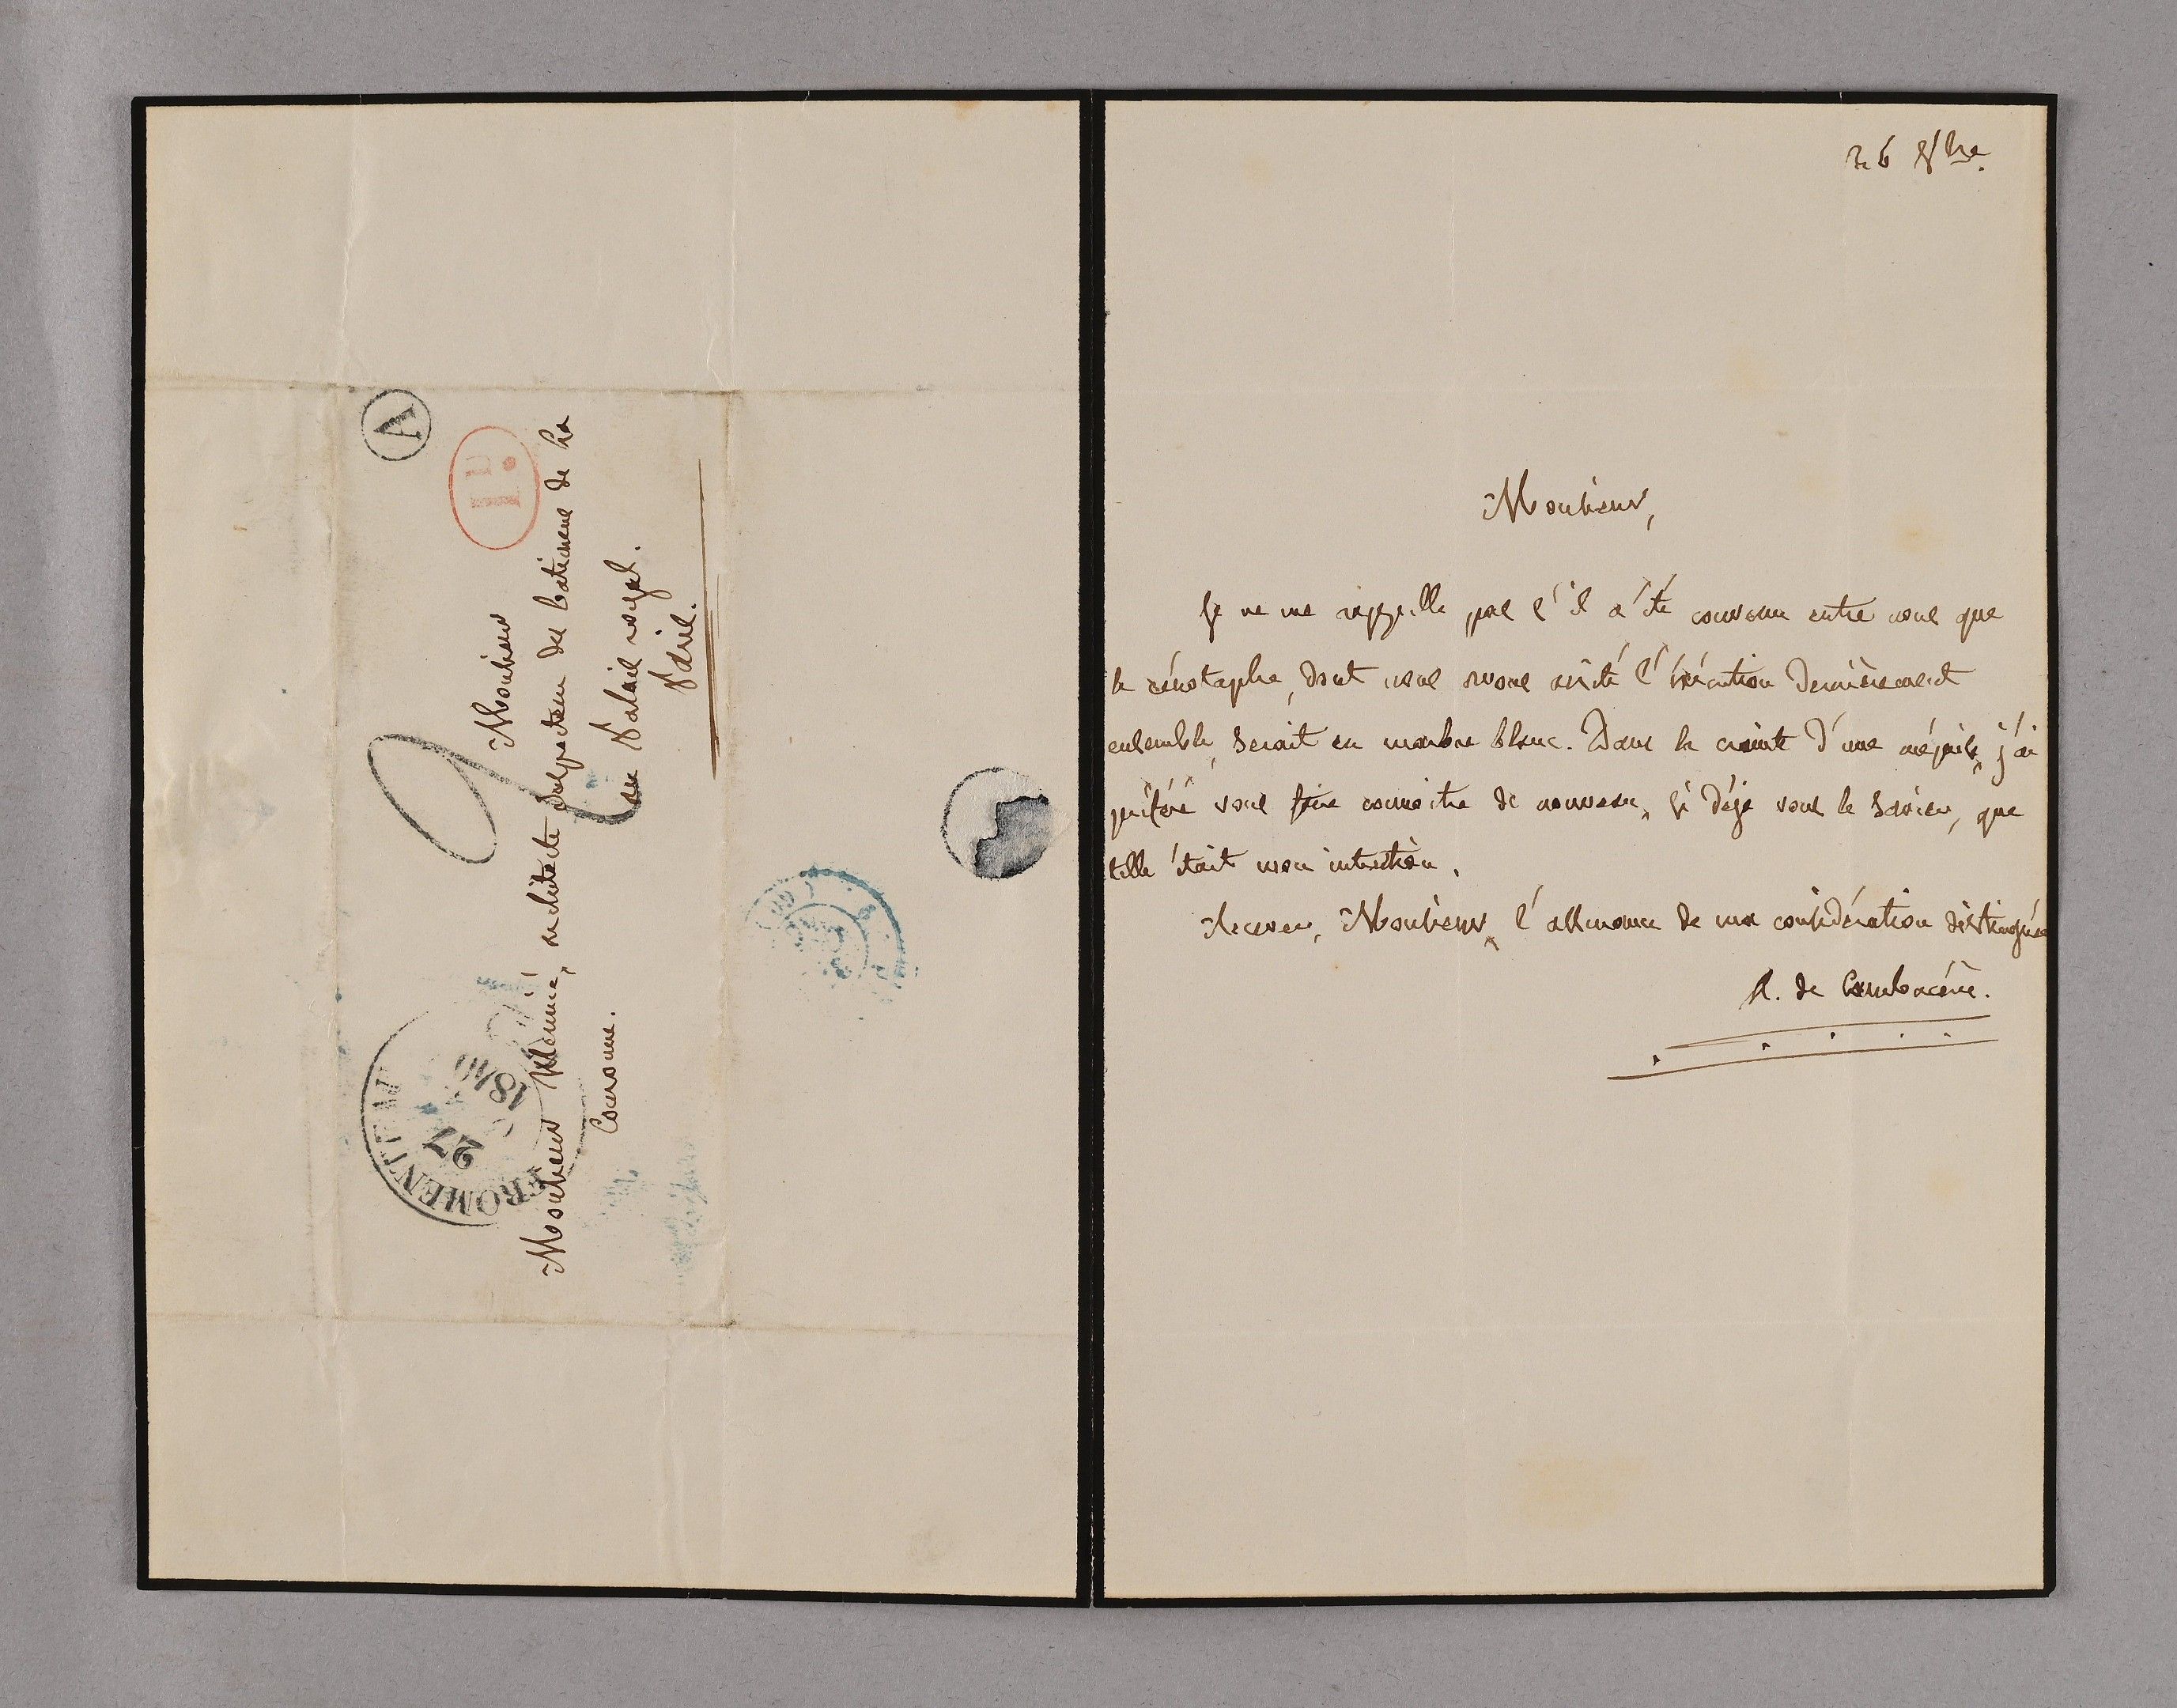 26 8bre.
Monsieur,
Je ne me rappelle pas s'il a été convenu entre nous que
le cénotaphe, dont nous avons arrêté l'exécution dernièrement
ensemble, serait en marbre blanc. Dans la crainte d'une méprise, j'ai
préféré vous faire connoitre de nouveau, si déjà vous le saviez, que
telle était mon intention.
Recevez, Monsieur, l'assurance de ma considération distinguée
A. de Cambacérès.
A
Monsieur
Monsieur architecte inspecteur des batimens de la
Couronne. au Palais royal.
Paris.
FROMENTEAU
27
1840